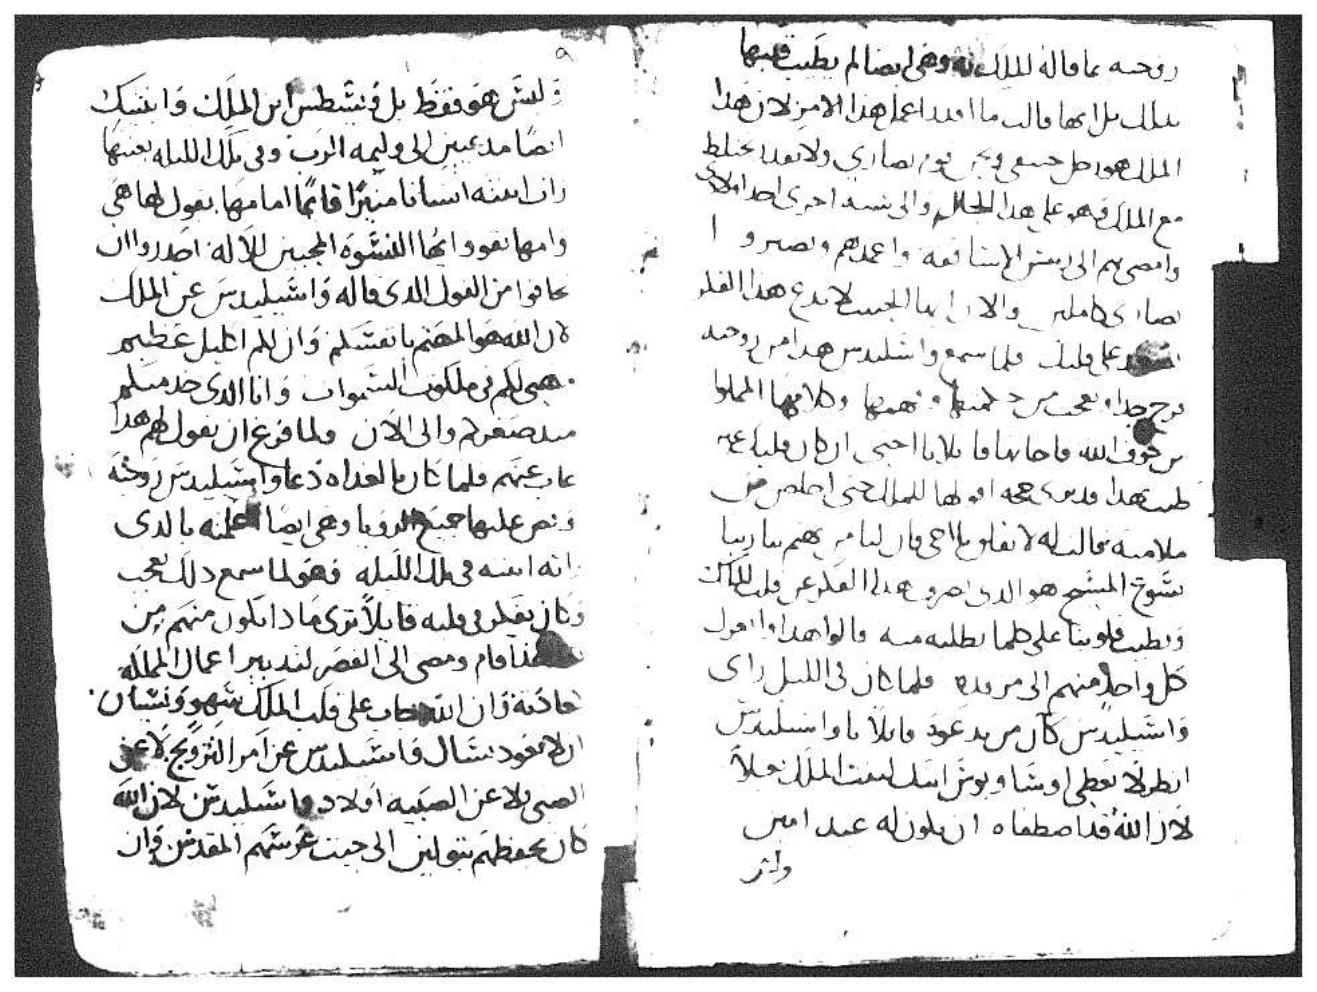 روحته بما قاله للملك له وهي ايضا لم يطيب قلبها
بذلك بل انها قالت ما اقدر اعمل هذا الامر لان هذا
الملك هو رجل حنفي ونحن قوم نصاري ولا نقدر نختلط
مع الملك فهو علي هذا الحال والي سنه اخري احد اولادي
وامضي بهم الي الاسقفه واعمدهم ونصيروا
نصاري كاملين والان ايها الحبيب لا تدع هذا الفكر
علي قلبك فلما سمع واشيليدس هذا من روحته
فرح جدا وتعجب من حكمتها وفهمها وكلامها المملوا
من خوف الله فاجابها قايلا يا اختي ان كان قلبك غير
طيب بهذا فدبري حجه اقولها للملك حتي اخلص من
ملامته فقالت له لا تقلق يا اخي فان لنا من يهتم بنا ربنا
يسوع المسيح هو الذي يصرف هذا الفكر عن قلب الملك
ويطيب قلوبنا علي كلما نطلبه منه قالوا هذا وانصرف
كل واحد منهم الي مرقده فلما كان في الليل راي
واشيليدس كان من يدعوه قايلا يا واشيليدس
انظر لا تعطي اوسابيوس ابنك لبنت الملك بعلا
لان الله قد اصطفاه ان يكون له عبد امين
وليس
٩
وليس هو فقط بل وقسطس ابن الملك وابنتك
ايضا مدعيين الي وليمه الرب وفي تلك الليله بعينها
رات ابنته انسانا منيرا قايما امامها يقول لها هي
وامها تقووا ايها النسوه المحبين للاله احدروا ان
تخافوا من القول الدي قاله واشيليدس عن الملك
لان الله هو المهتم بانفسكم وان لكم اكليل عظيم
مهيي لكم في ملكوت السموات وانا الدي خدمتكم
مند صغركم والي الان ولما فرغ ان يقول لهم هدا
غاب عنهم فلما كان بالغداه دعا واشيليدس زوجته
ونص عليها جميع الرويا وهي ايضا اعلمته بالدي
راته ابنته في تلك الليله فهو لما سمع دلك تعجب
وكان يفكر في قلبه قايلا تري ما دا يكون منهم من
هدا قام ومضي الي القصر لتدبير اعمال المملكه
كعادته وان الله جاب علي قلب الملك سهو ونسيان
ان لا يعود يسال واشيليدس عن امر التزويج لا عن
الصبي ولا عن الصبيه اولاد واشيليدس لان الله
كان يحفظهم بتولين الي حيث عرسهم المقدس وان